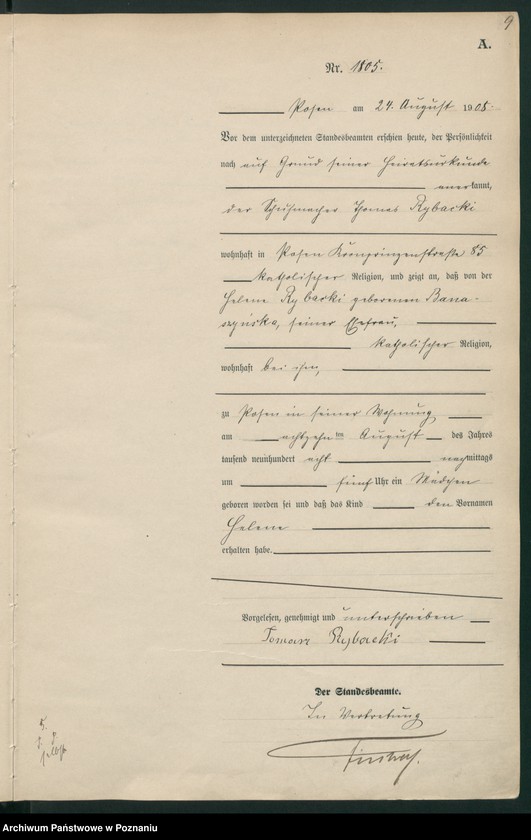 9
A.
Nr. 1805.
Posen am 24. August 1908.
Vor dem unterzeichneten Standesbeamten erschien heute, der Persönlichkeit
nach auf Grund seiner Heiratsurkunde
anerkannt,
der Schuhmacher Thomas Rybacki
wohnhaft in Posen Kronprinzenstraße 85
katholischer Religion, und zeigt an, daß von der
Helene Rybacki geborenen Bana-
szyńska, seiner Ehefrau,
katholischer Religion,
wohnhaft bei ihm,
zu Posen in seiner Wohnung
am achtzehn ten August des Jahres
tausend neunhundert acht nachmittags
um fünf Uhr ein Mädchen
geboren worden sei und daß das Kind den Vornamen
Helene
erhalten habe.
Vorgelesen, genehmigt und unterschrieben
Tomasz Rybacki
Der Standesbeamte.
In Vertretung
Archiwum Państwowe w Poznaniu